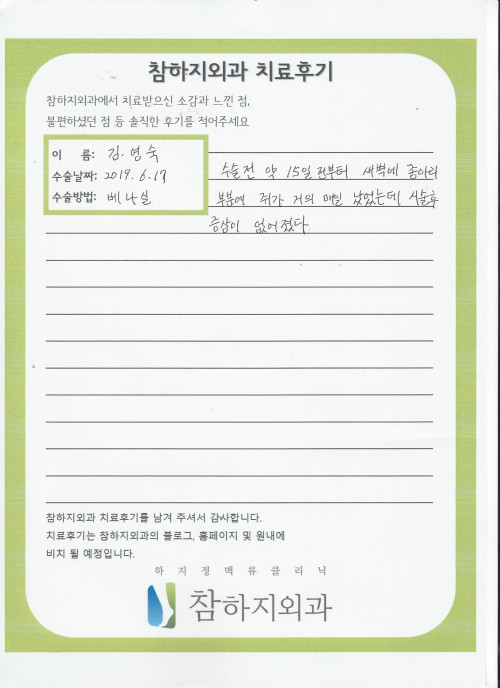 참하지외과 치료후기
참하지외과에서 치료받으신 소감과 느낀 점,
불편하셨던 점 등 솔직한 후기를 적어주세요
이 름: 김.영숙
수술날짜: 2019. 6.17
수술방법: 베나실
수술전 약 15일 전부터 새벽에 종아리
부분에 쥐가 거의 매일 났었는데, 시술후
증상이 없어졌다.
참하지외과 치료후기를 남겨 주셔서 감사합니다.
치료후기는 참하지외과의 블로그, 홈페이지 및 원내에
비치 될 예정입니다.
하지정맥류클리닉
참하지외과